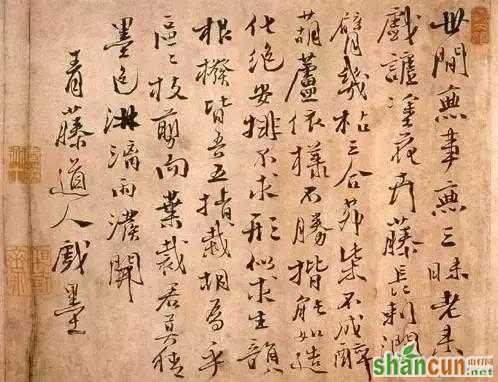 世間無事無三昧老來
戲謔塗花卉藤長刺闊
臂幾枯三合茅柴不成醉
葫蘆依樣不勝揩能如造
化絕安排不求形似求生韻
根撥皆吾五指栽胡為乎
區〻枝剪而葉裁君莫猜
墨色淋漓雨潑開
青藤道人戲墨
shancun
山村网